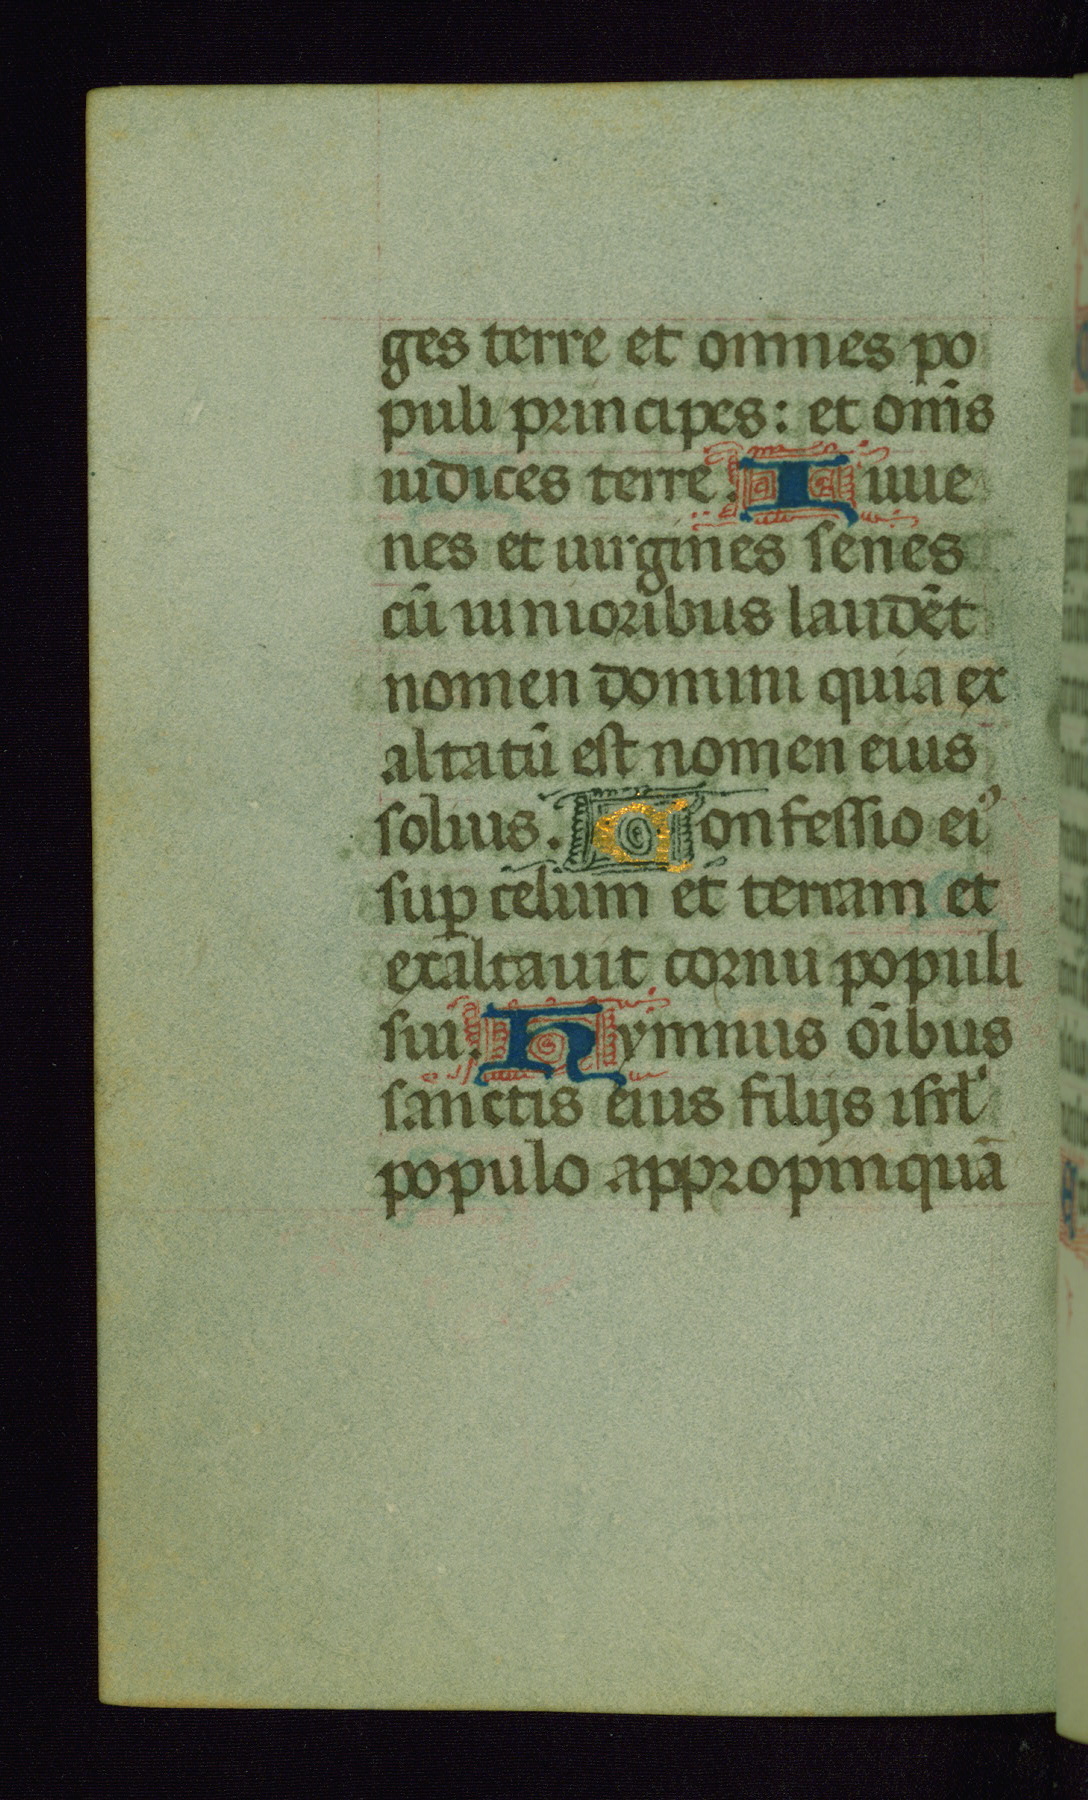 ges terre et omnes po
puli principes: et om̄s
iudices terre. Iuue
nes et uirgines senes
cū iunioribus laudēt
nomen domini quia ex
altatū est nomen eius
solius. Confessio eiꝰ
suꝑ celum et terram et
exaltauit cornu populi
sui. Hymnus oībus
sanctis eius filijs isrl̓
populo appropinquā